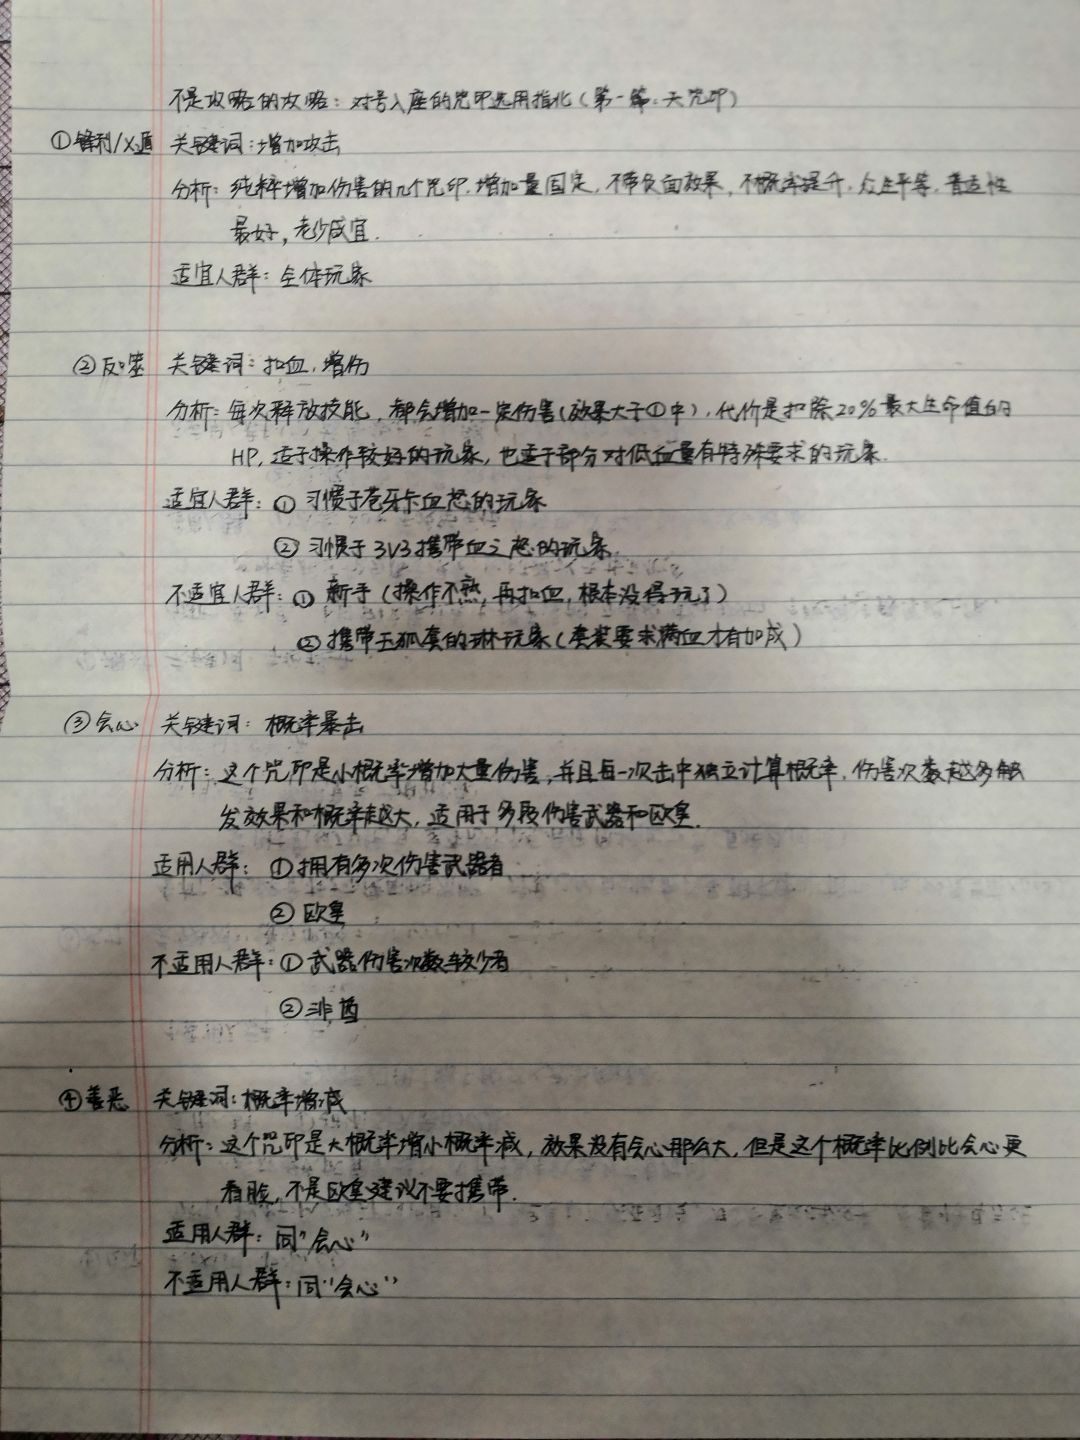 不是攻略的攻略：对号入座的咒印选用指北（第一篇：天咒印）
①锋利/X遁 关键词：增加攻击
分析：纯粹增加伤害的几个咒印，增加量固定，不带负面效果，不概率提升，众生平等，普适性
最好，老少咸宜.
适宜人群：全体玩家
②反噬 关键词：扣血，增伤
分析：每次释放技能，都会增加一定伤害（效果大于①中），代价是扣除20%最大生命值的
HP，适于操作较好的玩家，也适于部分对低血量有特殊要求的玩家.
适宜人群：① 习惯于苍牙卡血怒的玩家
② 习惯于3V3携带血之怒的玩家.
不适宜人群：① 新手（操作不熟，再扣血，根本没得玩了）
② 携带玉狐套的琳玩家（套装要求满血才有加成）
③会心 关键词：概率暴击
分析：这个咒印是小概率增加大量伤害，并且每一次击中独立计算概率，伤害次数越多触
发效果和概率越大，适用于多段伤害武器和欧皇.
适用人群：①拥有多次伤害武器者
② 欧皇
不适用人群：① 武器伤害次数较少者
② 非酋
④善恶 关键词：概率增减
分析：这个咒印是大概率增小概率减，效果没有会心那么大，但是这个概率比例比会心更
看脸，不是欧皇建议不要携带.
适用人群：同“会心”
不适用人群：同“会心”